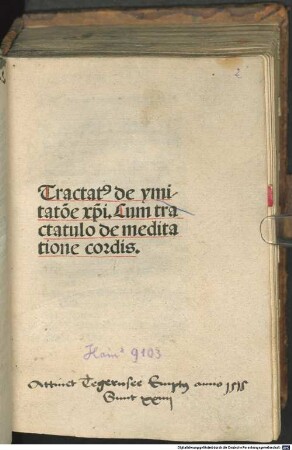 2
Tractatꝰ de ymi-
tatōe xp̄i. Cum tra
ctatulo de medita
tione cordis.
Hain* 9103
Attinet Tegernsee Emptus anno 1515
Sunt xxiiij